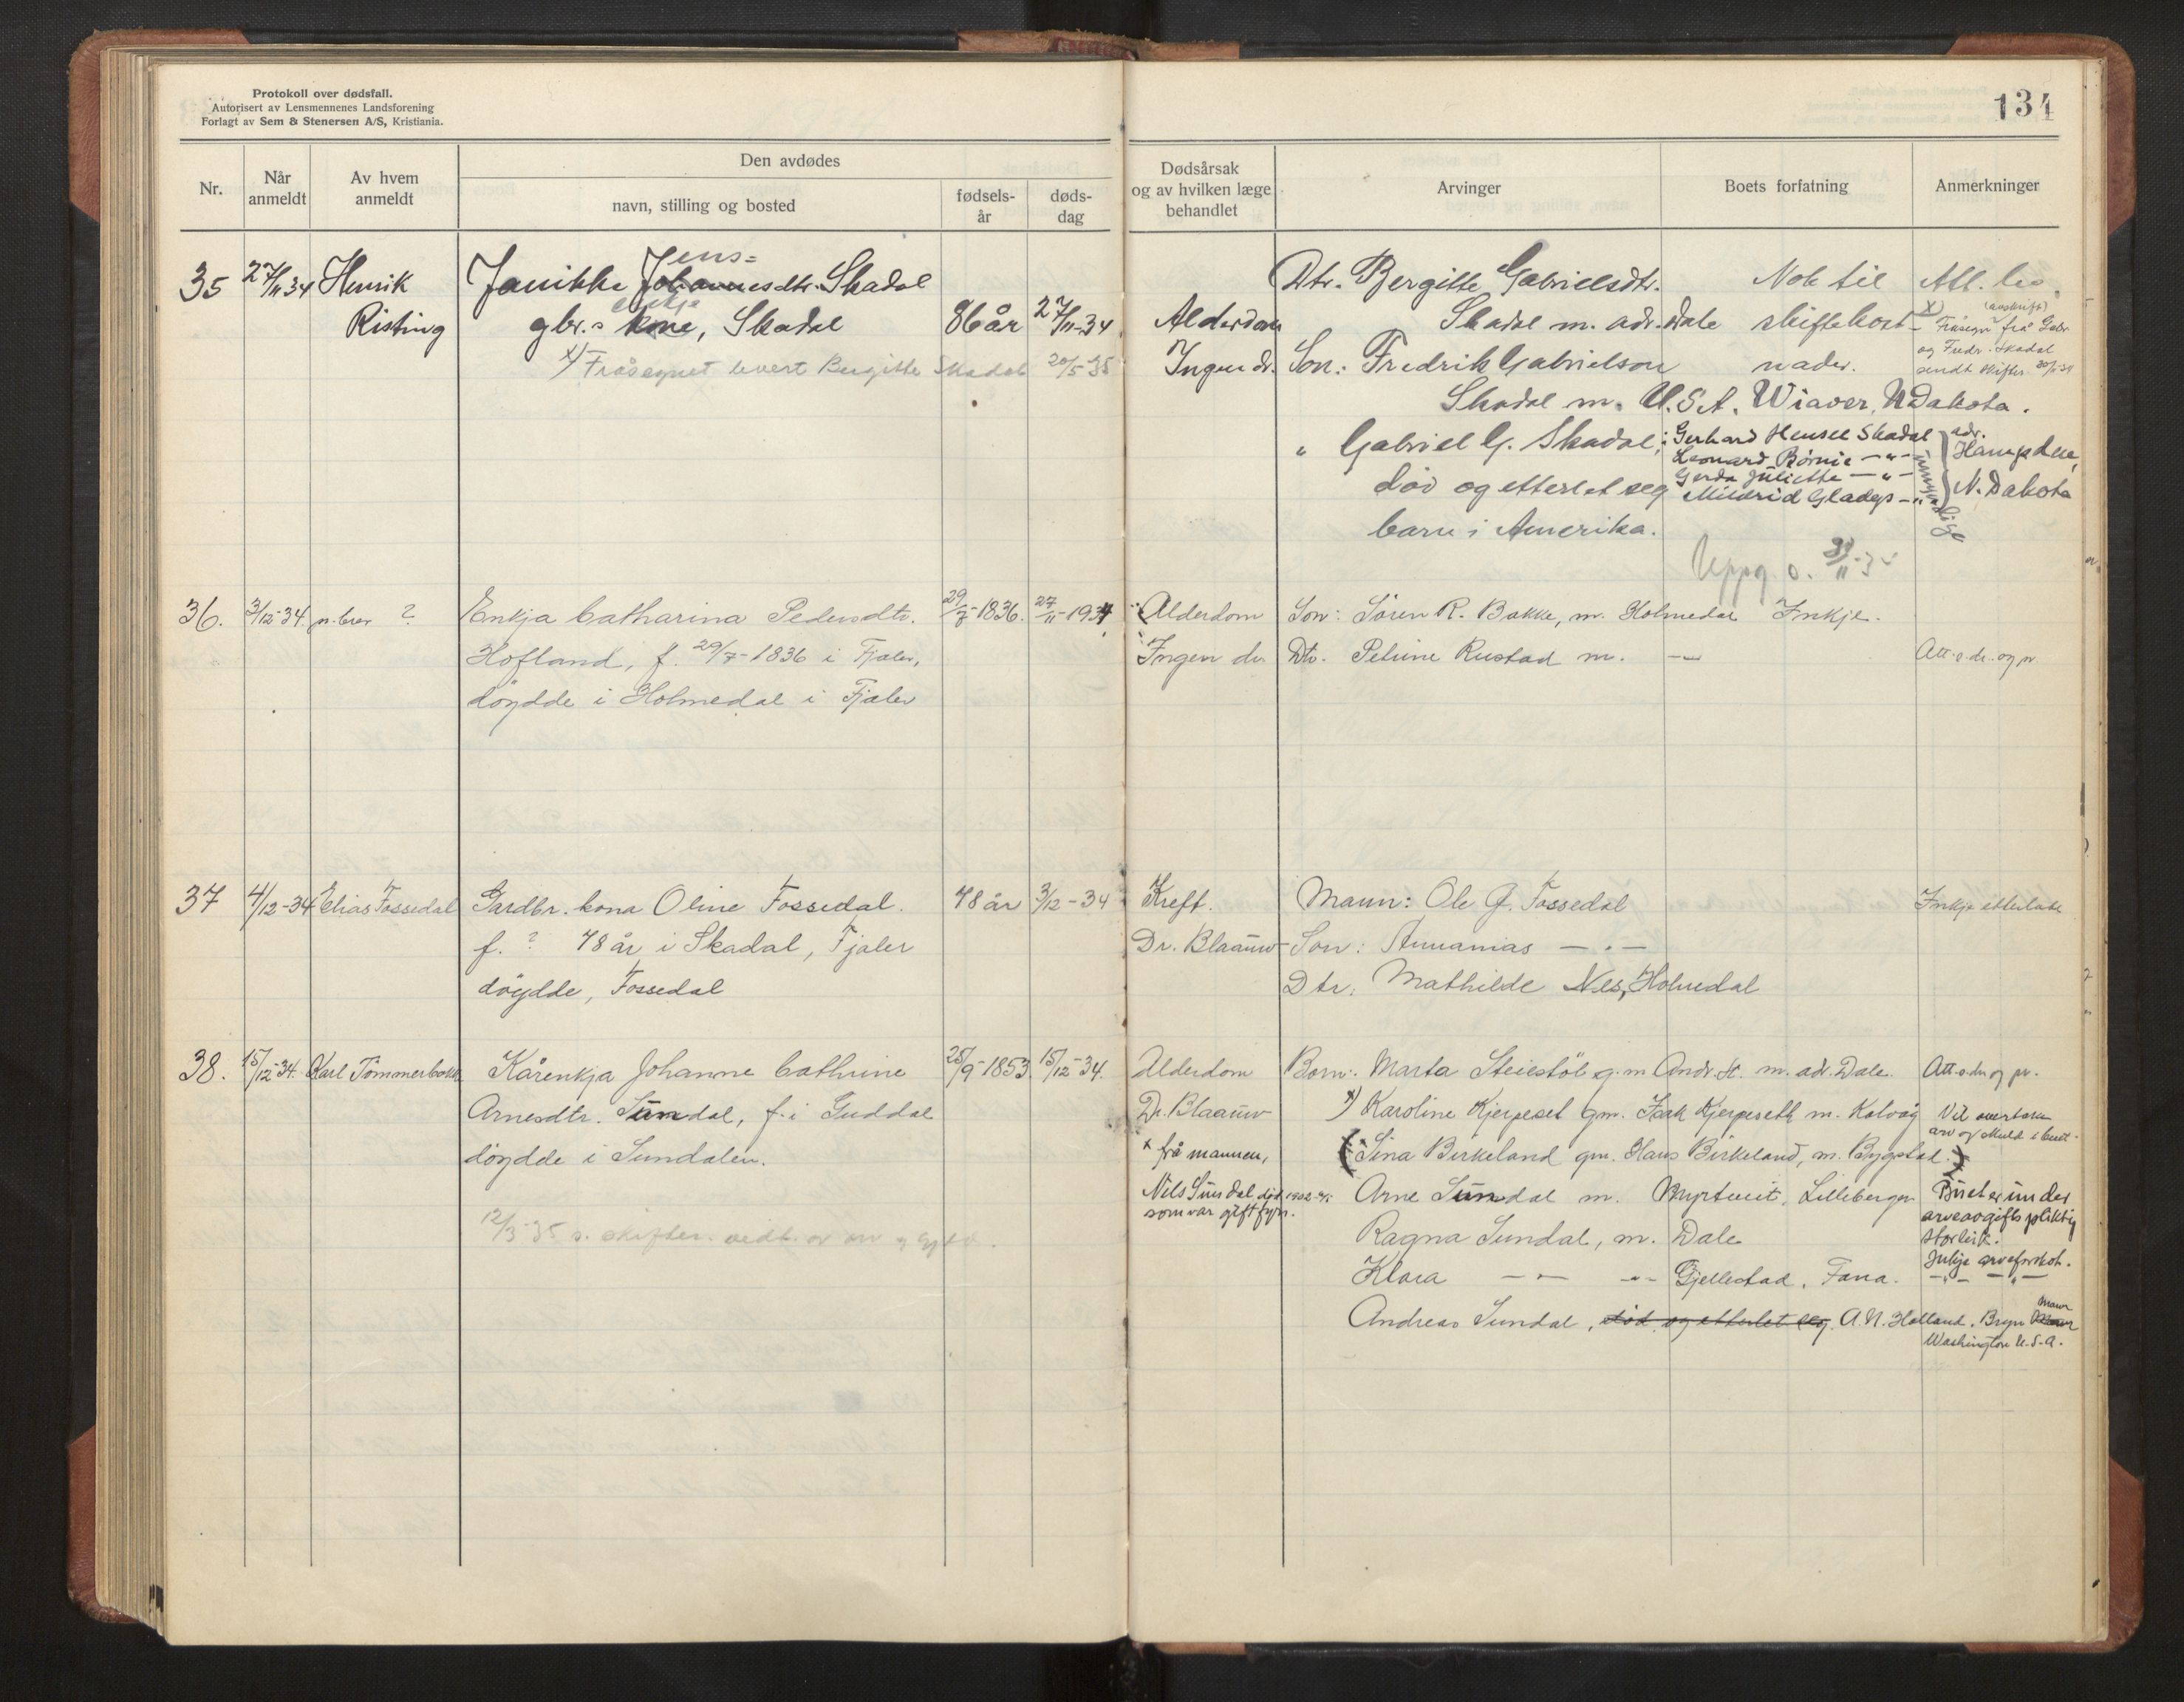 Protokoll over dødsfall.
Autorisert av Lensmennenes Landsforening
Forlagt av Sem & Stenersen A/S, Kristiania.
134
Nr.
Når anmeldt
Av hvem anmeldt
Den avdødes
navn, stilling og bosted
fødsels-år
døds-dag
Dødsårsak og av hvilken læge behandlet
Arvinger
Boets forfatning
Anmerkninger
35 27/11 34 Henrik Risting
Janikke Johannesdtr. Skadal
Jens=
gbr.s kone, Skadal
enkje
86 år 27/11-34
x) Fråsegnet levert Bergitte Skadal 20/5 35
Alderdom
Ingen dr.
Dtr. Bergitte Gabrielsdtr.
Skadal m. adr. Dale
Son: Fredrik Gabrielson
Skadal m. U.S.A. Wiaver, N Dakota.
" Gabriel G. Skadal,
død og etterlet seg
barn i Amerika.
Nok til
skiftekost-
nader.
Gerhard Hensel Skadal
Leonard Börnie — " —
Gerda Juliette — " —
Mildrid Gladys — " —
umyndige
adr.
Hampden,
N. Dakota
Att.
x) (avskrift)
Fråsegn frå Gabr.
og Fredr. Skadal
sendt skifter.
Uppg. o.
36. 3/12-34. pr. brev ?
Enkja Catharina Pedersdtr.
Hofland, f. 29/7-1836 i Fjaler,
døydde i Holmedal i Fjaler
29/7-1836. 27/11-1934
Alderdom
Ingen dr.
Son: Søren R. Bakke, m. Holmedal
Dtr. Petrine Rustad m. — " —
Inkje.
Att. o. dr. og pr
37 4/12-34 Elias Fossedal
Gardbr. kona Oline Fossedal.
f. ? 78 år i Skadal, Fjaler
døydde, Fossedal
78 år 3/12-34
Kreft.
Dr. Blaauw
Mann: Ole J. Fossedal
Son: Annanias — " —
Dtr. Mathilde Nes, Holmedal
Inkje etterlate
38. 15/12-34. Karl Tömmerbakk
Kårenkja Johanne Cathrine
Arnesdtr. Sundal, f. i Guddal
døydde i Sundalen.
25/9-1853. 15/12-34.
12/3-35 s. skifter. vedt. av arv og gjeld.
Alderdom
Dr. Blaauw
x frå mannen,
Nils Sundal død 1902
som var gift fyrr.
Born: Marta Steiestöl g. m Andr. St. m. adr. Dale.
x) Karoline Kjerpeset gm. Isak Kjerpeseth m. Kalvåg
(x Sina Birkeland gm. Hans Birkeland, m. Bygstad.)
Arne Sundal m. Myrtveit, Lilleberger
Ragna Sundal, m. Dale
Klara — " — — " — Gjellestad, Fana.
Andreas Sundal, død og etterlet seg A. N. Holland, Bryn Mawr
Washington U.S.A.
Att. o. dr og pr.
Vil overtaka
arv og skuld i buet.
Buet er under
arveavgiftspliktig
storleik.
Inkje arveforskot.
— " — — " —